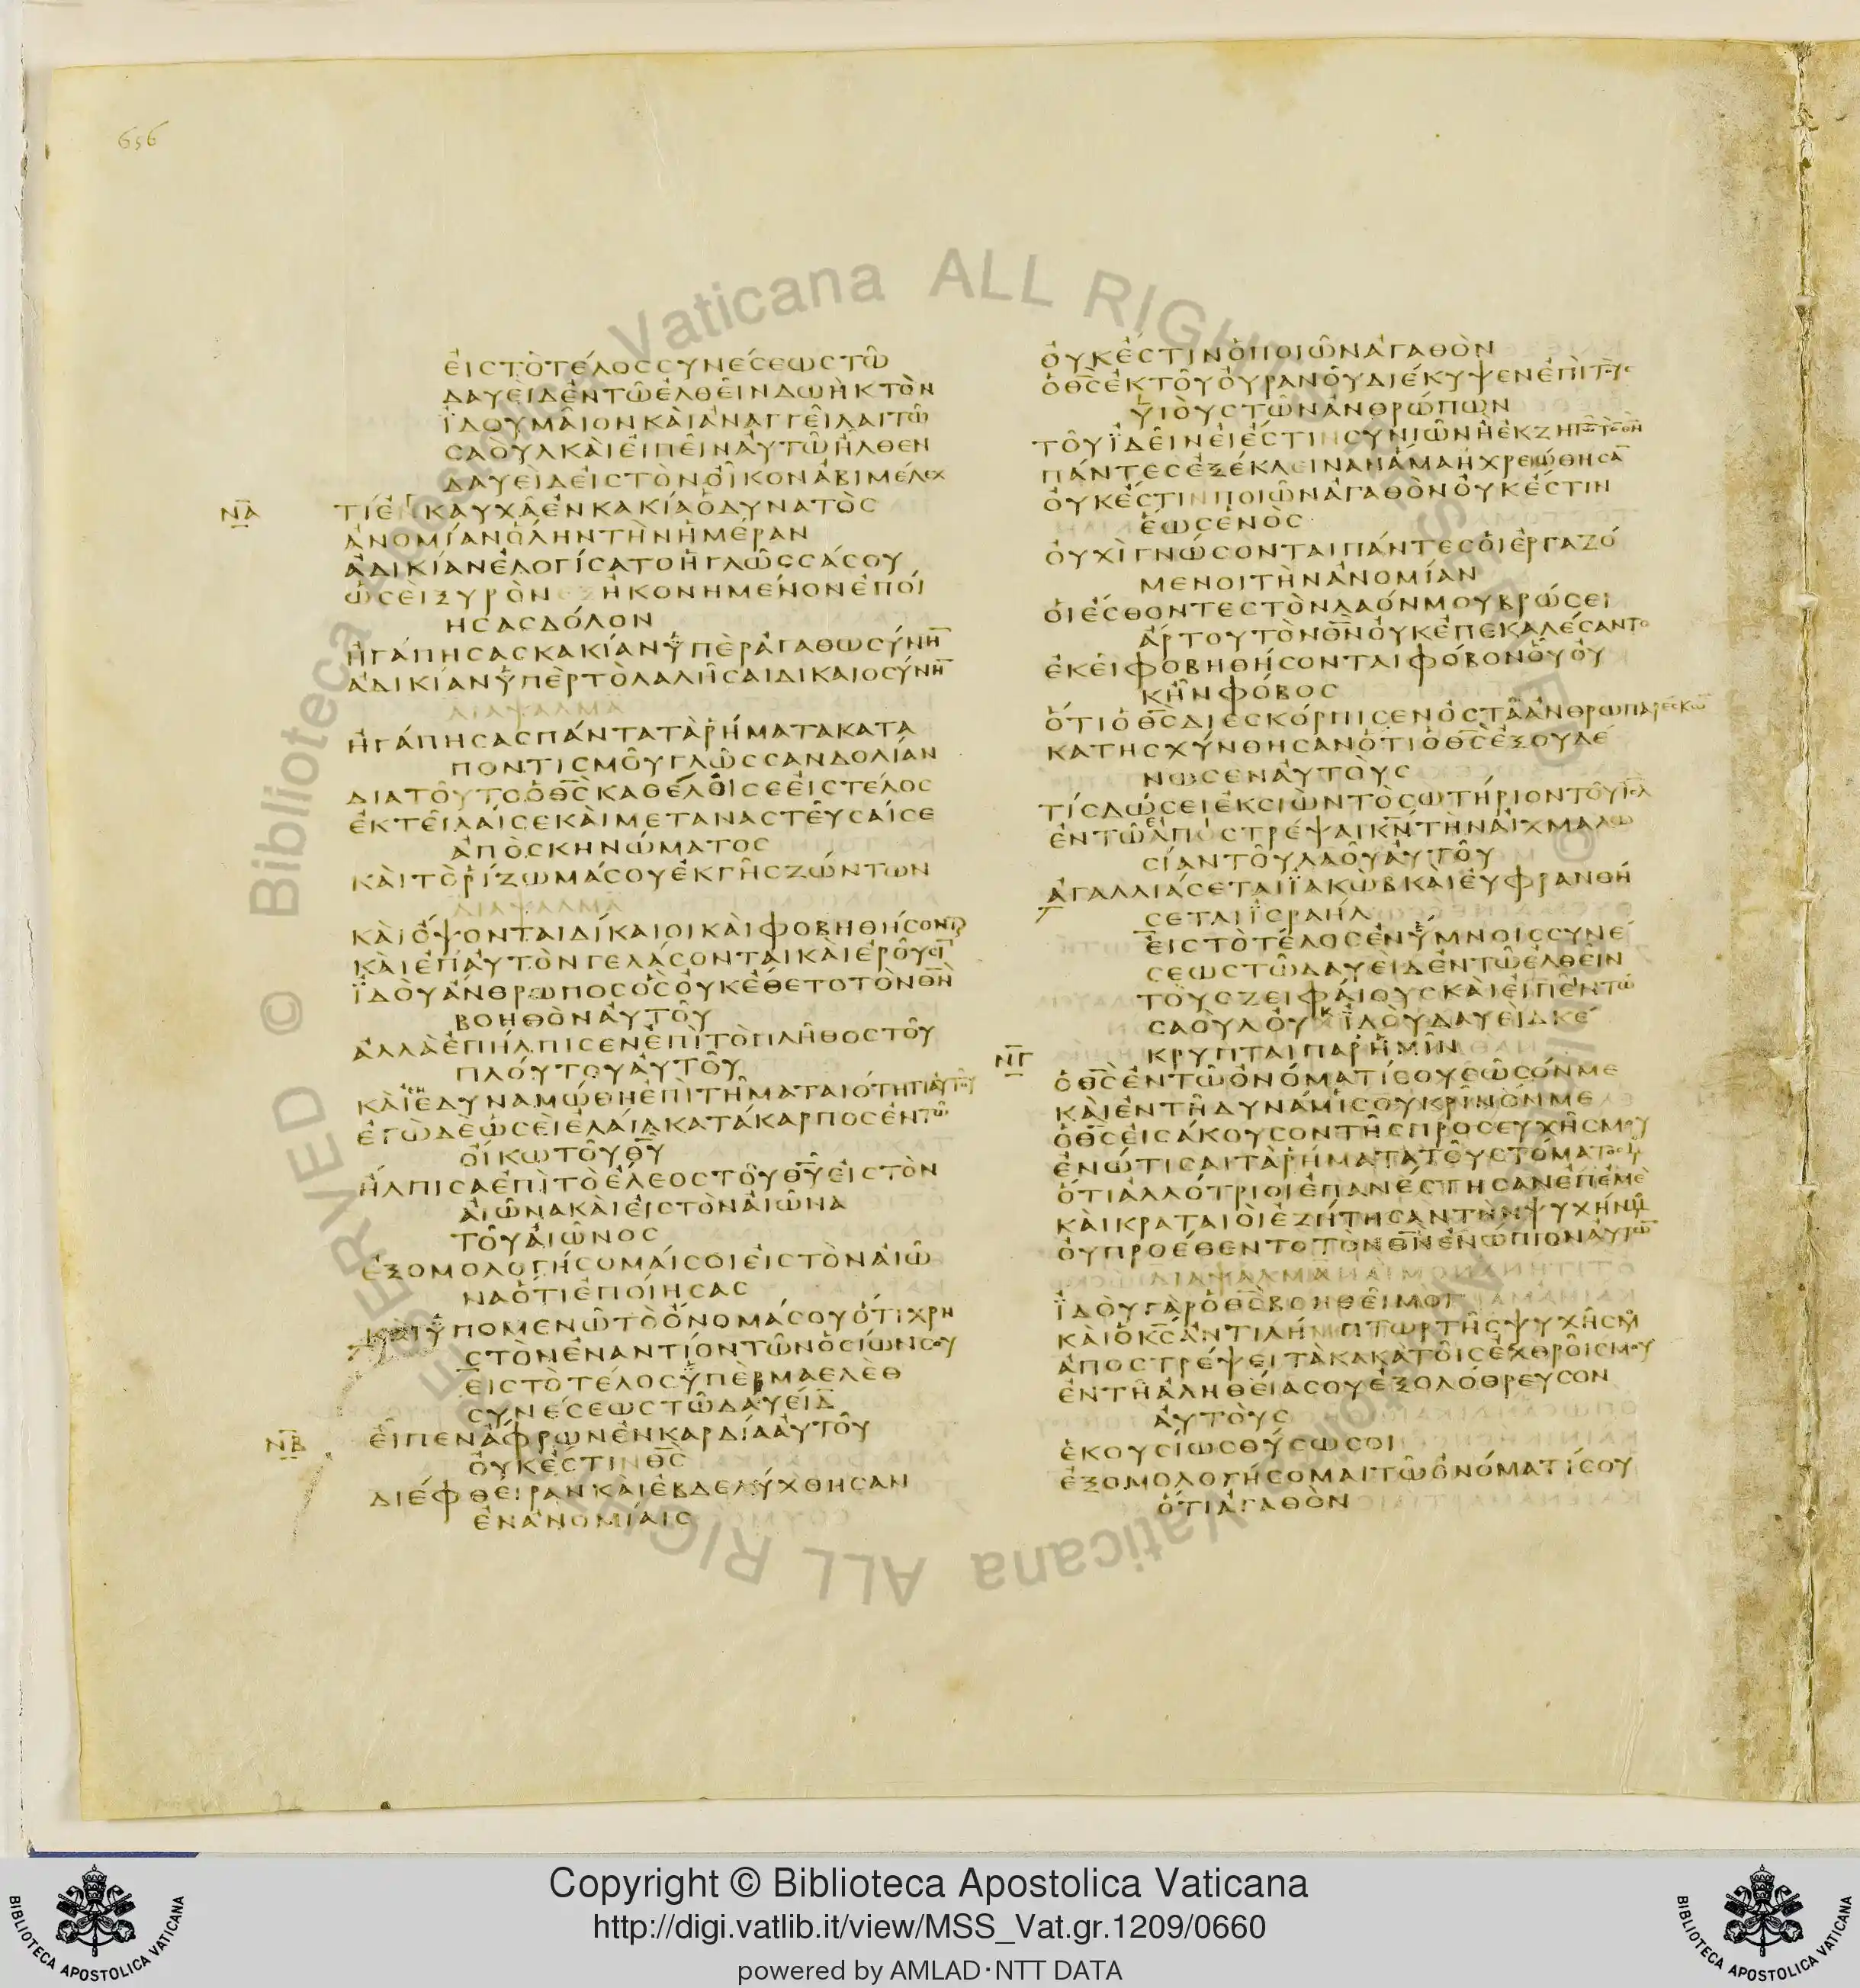 656
ΕΙΣΤΟΤΕΛΟΣΣΥΝΕΣΕΩΣΤΩ
ΔΑΥΕΙΔΕΝΤΩΕΛΘΕΙΝΔΩΗΚΤΟΝ
ΪΔΟΥΜΑΙΟΝΚΑΙΑΝΑΓΓΕΙΛΑΙΤΩ
ΣΑΟΥΛΚΑΙΕΙΠΕΙΝΑΥΤΩΗΛΘΕΝ
ΔΑΥΕΙΔΕΙΣΤΟΝΟΙΚΟΝΑΒΙΜΕΛΕΧ
ΝΑ
ΤΙΕΓΚΑΥΧΑΕΝΚΑΚΙΑΟΔΥΝΑΤΟΣ
ΑΝΟΜΙΑΝΟΛΗΝΤΗΝΗΜΕΡΑΝ
ΑΔΙΚΙΑΝΕΛΟΓΙΣΑΤΟΗΓΛΩΣΣΑΣΟΥ
ΩΣΕΙΞΥΡΟΝΕΞΗΚΟΝΗΜΕΝΟΝΕΠΟΙ
ΗΣΑΣΔΟΛΟΝ
ΗΓΑΠΗΣΑΣΚΑΚΙΑΝΥΠΕΡΑΓΑΘΩΣΥΝΗ̅
ΑΔΙΚΙΑΝΥΠΕΡΤΟΛΑΛΗΣΑΙΔΙΚΑΙΟΣΥΝΗ̅
ΔΙΑΨΑΛΜΑ
ΗΓΑΠΗΣΑΣΠΑΝΤΑΤΑΡΗΜΑΤΑΚΑΤΑ
ΠΟΝΤΙΣΜΟΥΓΛΩΣΣΑΝΔΟΛΙΑΝ
ΔΙΑΤΟΥΤΟΟΘ̅Σ̅ΚΑΘΕΛΟΙΣΕΕΙΣΤΕΛΟΣ
ΕΚΤΕΙΛΑΙΣΕΚΑΙΜΕΤΑΝΑΣΤΕΥΣΑΙΣΕ
ΑΠΟΣΚΗΝΩΜΑΤΟΣ
ΚΑΙΤΟΡΙΖΩΜΑΣΟΥΕΚΓΗΣΖΩΝΤΩΝ
ΔΙΑΨΑΛΜΑ
ΚΑΙΟΨΟΝΤΑΙΔΙΚΑΙΟΙΚΑΙΦΟΒΗΘΗΣΟΝΤΑΙ
ΚΑΙΕΠΑΥΤΟΝΓΕΛΑΣΟΝΤΑΙΚΑΙΕΡΟΥΣΙ̅
ΪΔΟΥΑΝΘΡΩΠΟΣΟΣΟΥΚΕΘΕΤΟΤΟΝΘ̅Ν̅
ΒΟΗΘΟΝΑΥΤΟΥ
ΑΛΛΑΕΠΗΛΠΙΣΕΝΕΠΙΤΟΠΛΗΘΟΣΤΟΥ
ΠΛΟΥΤΟΥΑΥΤΟΥ
ΚΑΙΕΔΥΝΑΜΩΘΗΕΠΙΤΗΜΑΤΑΙΟΤΗΤΙΑΥΤΟΥ
ΕΓΩΔΕΩΣΕΙΕΛΑΙΑΚΑΤΑΚΑΡΠΟΣΕΝΤΩ
ΟΙΚΩΤΟΥΘ̅Υ̅
ΗΛΠΙΣΑΕΠΙΤΟΕΛΕΟΣΤΟΥΘ̅Υ̅ΕΙΣΤΟΝ
ΑΙΩΝΑΚΑΙΕΙΣΤΟΝΑΙΩΝΑ
ΤΟΥΑΙΩΝΟΣ
ΕΞΟΜΟΛΟΓΗΣΟΜΑΙΣΟΙΕΙΣΤΟΝΑΙΩ
ΝΑΟΤΙΕΠΟΙΗΣΑΣ
ΚΑΙΥΠΟΜΕΝΩΤΟΟΝΟΜΑΣΟΥΟΤΙΧΡΗ
ΣΤΟΝΕΝΑΝΤΙΟΝΤΩΝΟΣΙΩΝΣΟΥ
ΕΙΣΤΟΤΕΛΟΣΥΠΕΡΜΑΕΛΕΘ
ΣΥΝΕΣΕΩΣΤΩΔΑΥΕΙΔ
ΝΒ
ΕΙΠΕΝΑΦΡΩΝΕΝΚΑΡΔΙΑΑΥΤΟΥ
ΟΥΚΕΣΤΙΝΘ̅Σ̅
ΔΙΕΦΘΕΙΡΑΝΚΑΙΕΒΔΕΛΥΧΘΗΣΑΝ
ΕΝΑΝΟΜΙΑΙΣ
ΟΥΚΕΣΤΙΝΟΠΟΙΩΝΑΓΑΘΟΝ
ΟΘ̅Σ̅ΕΚΤΟΥΟΥΡΑΝΟΥΔΙΕΚΥΨΕΝΕΠΙΤΟΥΣ
ΥΙΟΥΣΤΩΝΑΝΘΡΩΠΩΝ
ΤΟΥΪΔΕΙΝΕΙΕΣΤΙΝΣΥΝΙΩΝΗΕΚΖΗΤΩ̅ΤΟ̅Θ̅Ν̅
ΠΑΝΤΕΣΕΞΕΚΛΕΙΝΑΝΑΜΑΗΧΡΕΩΘΗΣΑ̅
ΟΥΚΕΣΤΙΝΠΟΙΩΝΑΓΑΘΟΝΟΥΚΕΣΤΙΝ
ΕΩΣΕΝΟΣ
ΟΥΧΙΓΝΩΣΟΝΤΑΙΠΑΝΤΕΣΟΙΕΡΓΑΖΟ
ΜΕΝΟΙΤΗΝΑΝΟΜΙΑΝ
ΟΙΕΣΘΟΝΤΕΣΤΟΝΛΑΟΝΜΟΥΒΡΩΣΕΙ
ΑΡΤΟΥΤΟΝΘ̅Ν̅ΟΥΚΕΠΕΚΑΛΕΣΑΝΤΟ
ΕΚΕΙΦΟΒΗΘΗΣΟΝΤΑΙΦΟΒΟΝΟΥΟΥ
ΚΗΝΦΟΒΟΣ
ΟΤΙΟΘ̅Σ̅ΔΙΕΣΚΟΡΠΙΣΕΝΟΣΤΑΑΝΘΡΩΠΑΡΕΣΚΩ̅
ΚΑΤΗΣΧΥΝΘΗΣΑΝΟΤΙΟΘ̅Σ̅ΕΞΟΥΔΕ
ΝΩΣΕΝΑΥΤΟΥΣ
ΤΙΣΔΩΣΕΙΕΚΣΙΩΝΤΟΣΩΤΗΡΙΟΝΤΟΥΙ̅Η̅Λ̅
ΕΝΤΩΑΠΟΣΤΡΕΨΑΙΚ̅Ν̅ΤΗΝΑΙΧΜΑΛΩ
ΣΙΑΝΤΟΥΛΑΟΥΑΥΤΟΥ
ΑΓΑΛΛΙΑΣΕΤΑΙΪΑΚΩΒΚΑΙΕΥΦΡΑΝΘΗ
ΣΕΤΑΙΪΣΡΑΗΛ
ΕΙΣΤΟΤΕΛΟΣΕΝΥΜΝΟΙΣΣΥΝΕ
ΣΕΩΣΤΩΔΑΥΕΙΔΕΝΤΩΕΛΘΕΙΝ
ΤΟΥΣΖΕΙΦΑΙΟΥΣΚΑΙΕΙΠΕΝΤΩ
ΣΑΟΥΛΟΥΚΪΔΟΥΔΑΥΕΙΔΚΕ
ΚΡΥΠΤΑΙΠΑΡΗΜΙΝ
ΝΓ
ΟΘ̅Σ̅ΕΝΤΩΟΝΟΜΑΤΙΣΟΥΣΩΣΟΝΜΕ
ΚΑΙΕΝΤΗΔΥΝΑΜΙΣΟΥΚΡΙΝΟΝΜΕ
ΟΘ̅Σ̅ΕΙΣΑΚΟΥΣΟΝΤΗΣΠΡΟΣΕΥΧΗΣΜΟΥ
ΕΝΩΤΙΣΑΙΤΑΡΗΜΑΤΑΤΟΥΣΤΟΜΑΤΟΣΜΟΥ
ΟΤΙΑΛΛΟΤΡΙΟΙΕΠΑΝΕΣΤΗΣΑΝΕΠΕΜΕ
ΚΑΙΚΡΑΤΑΙΟΙΕΖΗΤΗΣΑΝΤΗΝΨΥΧΗΝΜΟΥ
ΟΥΠΡΟΕΘΕΝΤΟΤΟΝΘ̅Ν̅ΕΝΩΠΙΟΝΑΥΤΩ̅
ΔΙΑΨΑΛΜΑ
ΪΔΟΥΓΑΡΟΘ̅Σ̅ΒΟΗΘΕΙΜΟΙ
ΚΑΙΟΚ̅Σ̅ΑΝΤΙΛΗΜΠΤΩΡΤΗΣΨΥΧΗΣΜΟΥ
ΑΠΟΣΤΡΕΨΕΙΤΑΚΑΚΑΤΟΙΣΕΧΘΡΟΙΣΜΟΥ
ΕΝΤΗΑΛΗΘΕΙΑΣΟΥΕΞΟΛΟΘΡΕΥΣΟΝ
ΑΥΤΟΥΣ
ΕΚΟΥΣΙΩΣΘΥΣΩΣΟΙ
ΕΞΟΜΟΛΟΓΗΣΟΜΑΙΤΩΟΝΟΜΑΤΙΣΟΥ
ΟΤΙΑΓΑΘΟΝ
Copyright © Biblioteca Apostolica Vaticana
http://digi.vatlib.it/view/MSS_Vat.gr.1209/0660
powered by AMLAD·NTT DATA